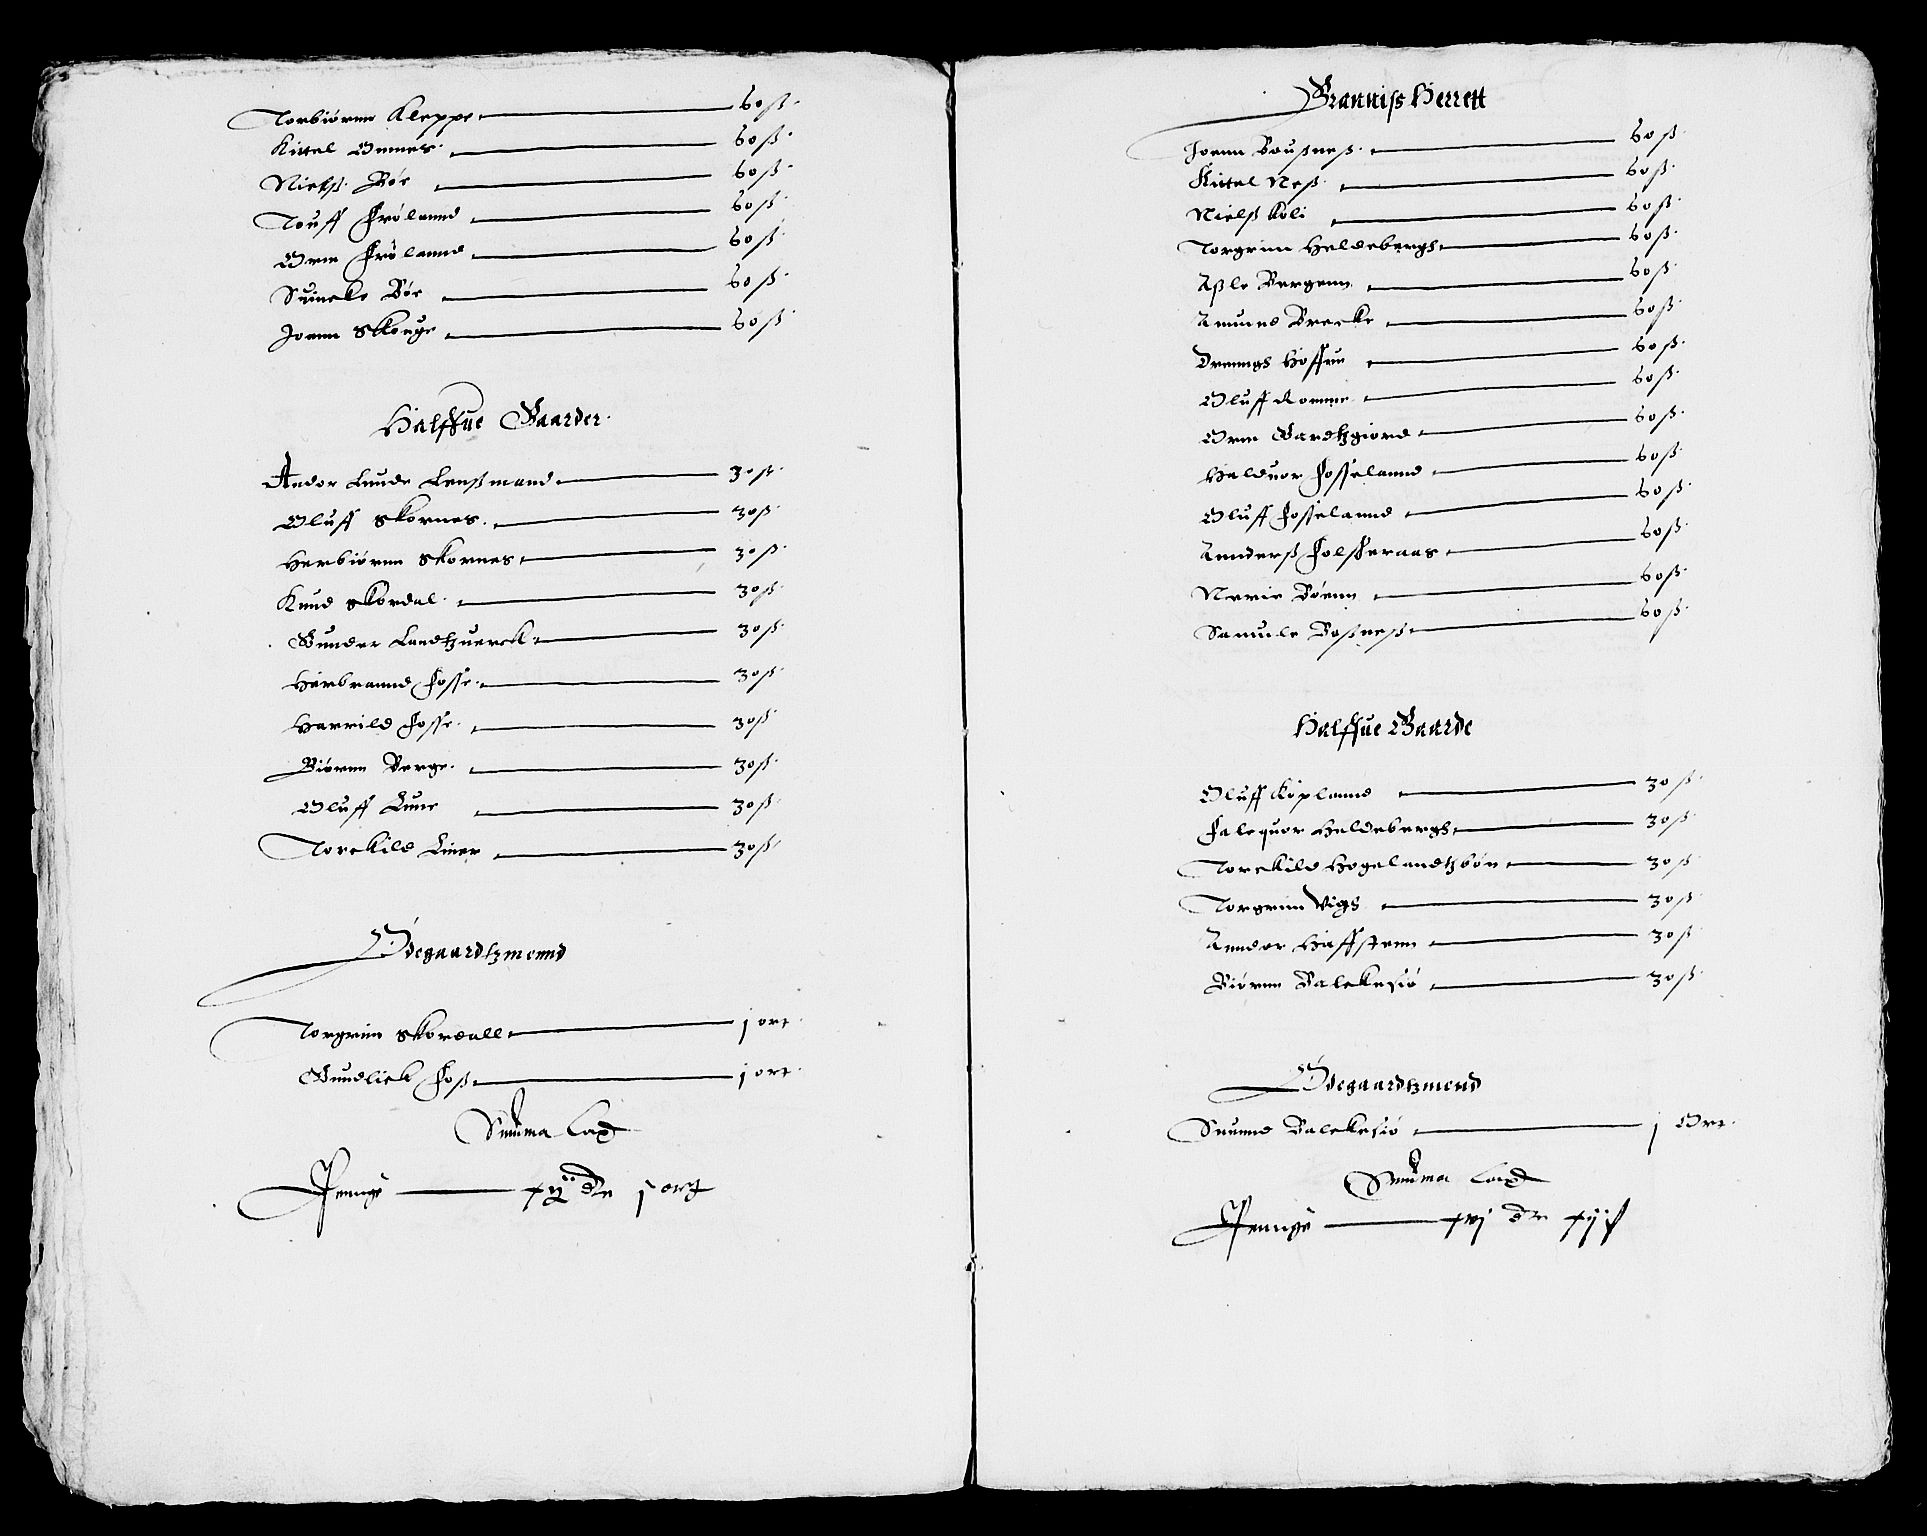 Torbiørnn Kleppe 60 ß.
Kittel Omnes 60 ß.
Nielß Bøe 60 ß.
Touff Frølannd 60 ß.
Orm Frølannd 60 ß.
Suincke Bøe 60 ß.
Joenn Skouge 60 ß.
Halffue Gaarder.
Andor Lunde Lenßmand 30 ß.
Oluff Skornes. 30 ß.
Herbiørnn Skornes 30 ß.
Knud Skordal. 30 ß.
Gunder Landtzuerck 30 ß.
Herbrannd Fosse. 30 ß.
Harrild Fosse. 30 ß.
Biørnn Berge. 30 ß.
Oluff Lune 30 ß.
Torckild Liner 30 ß.
Ødegaardtzmennd
Torgrim Skordall j ort.
Gundlick Foß j ort.
Summa Lax
Penge j ort
Granniss Herrett
Joenn Bousneß. 60 ß.
Kittel Neß. 60 ß.
Nielß Koli 60 ß.
Torgrim Heldebergh 60 ß.
Aßle Bergenn 60 ß.
Amund Brecke 60 ß.
Drenngs Hoffuu 60 ß.
Oluff Romme 60 ß.
Orm Gardtzgiord 60 ß.
Halduor Fosselannd 60 ß.
Oluff Fosselannd 60 ß.
Annderß Folskeraas 60 ß.
Nerie Bøenn 60 ß.
Samule Boßneß 60 ß.
Halffue Gaarde
Oluff Koplannd 30 ß.
Falequor Heldebergh 30 ß.
Torckild Hogelandtzbøn 30 ß.
Torgrim Vigs 30 ß.
Anndor Haffstenn 30 ß.
Biørnn Balckesiø 30 ß.
Ødegaardtzmend
Suennd Balckesiø j Ort.
Summa Lax
Penge xvj dr xij ß